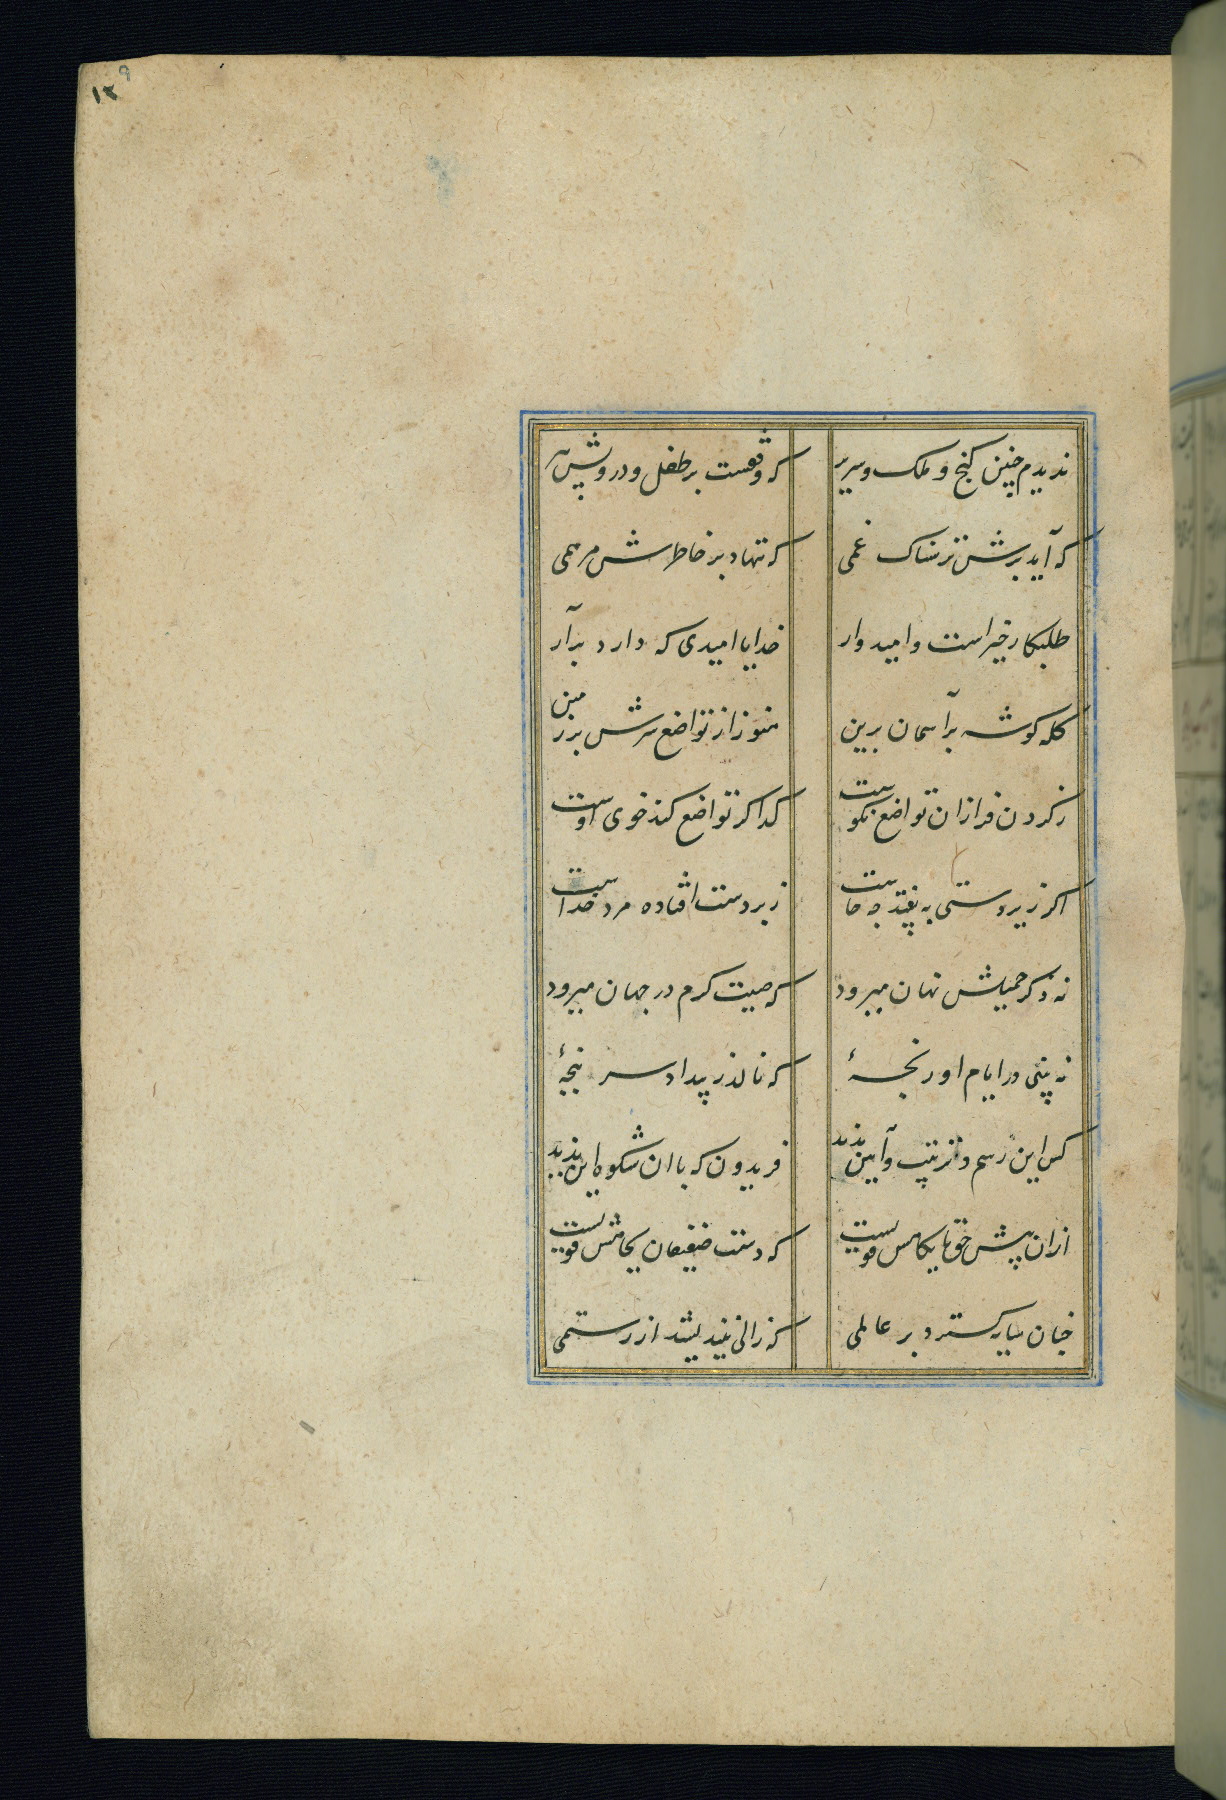 ۱۲۹
ندیدم چنین کنج و ملک و سریر
که وقفست بر طفل و درویش پیر
که آید برش ترسناک غمی
که ننهاد بر خاطرش مرهمی
طلبکار خیر است و امیدوار
خدایا امیدی که دارد برآر
کله گوشه بر آسمان برین
هنوز از تواضع سرش بر زمین
ز کردن فرازان تواضع نکوست
کدا کر تواضع کند خوی اوست
اکر زیردستی بیفتد چه خاست
زبردست افتاده مرد خداست
نه ذکر جمیلش نهان میرود
که صیت کرم در جهان میرود
نه بینی در ایام او رنجهٔ
که نالد ز بیداد سر پنجهٔ
کس این رسم و ترتیب و آیین ندید
فریدون که با ان شکوه این ندید
ازان پیش حق پایکاهش قویست
که دست ضعیفان بجاهش قویست
چنان سایه کسترد بر عالمی
که زالی نیندیشد از رستمی